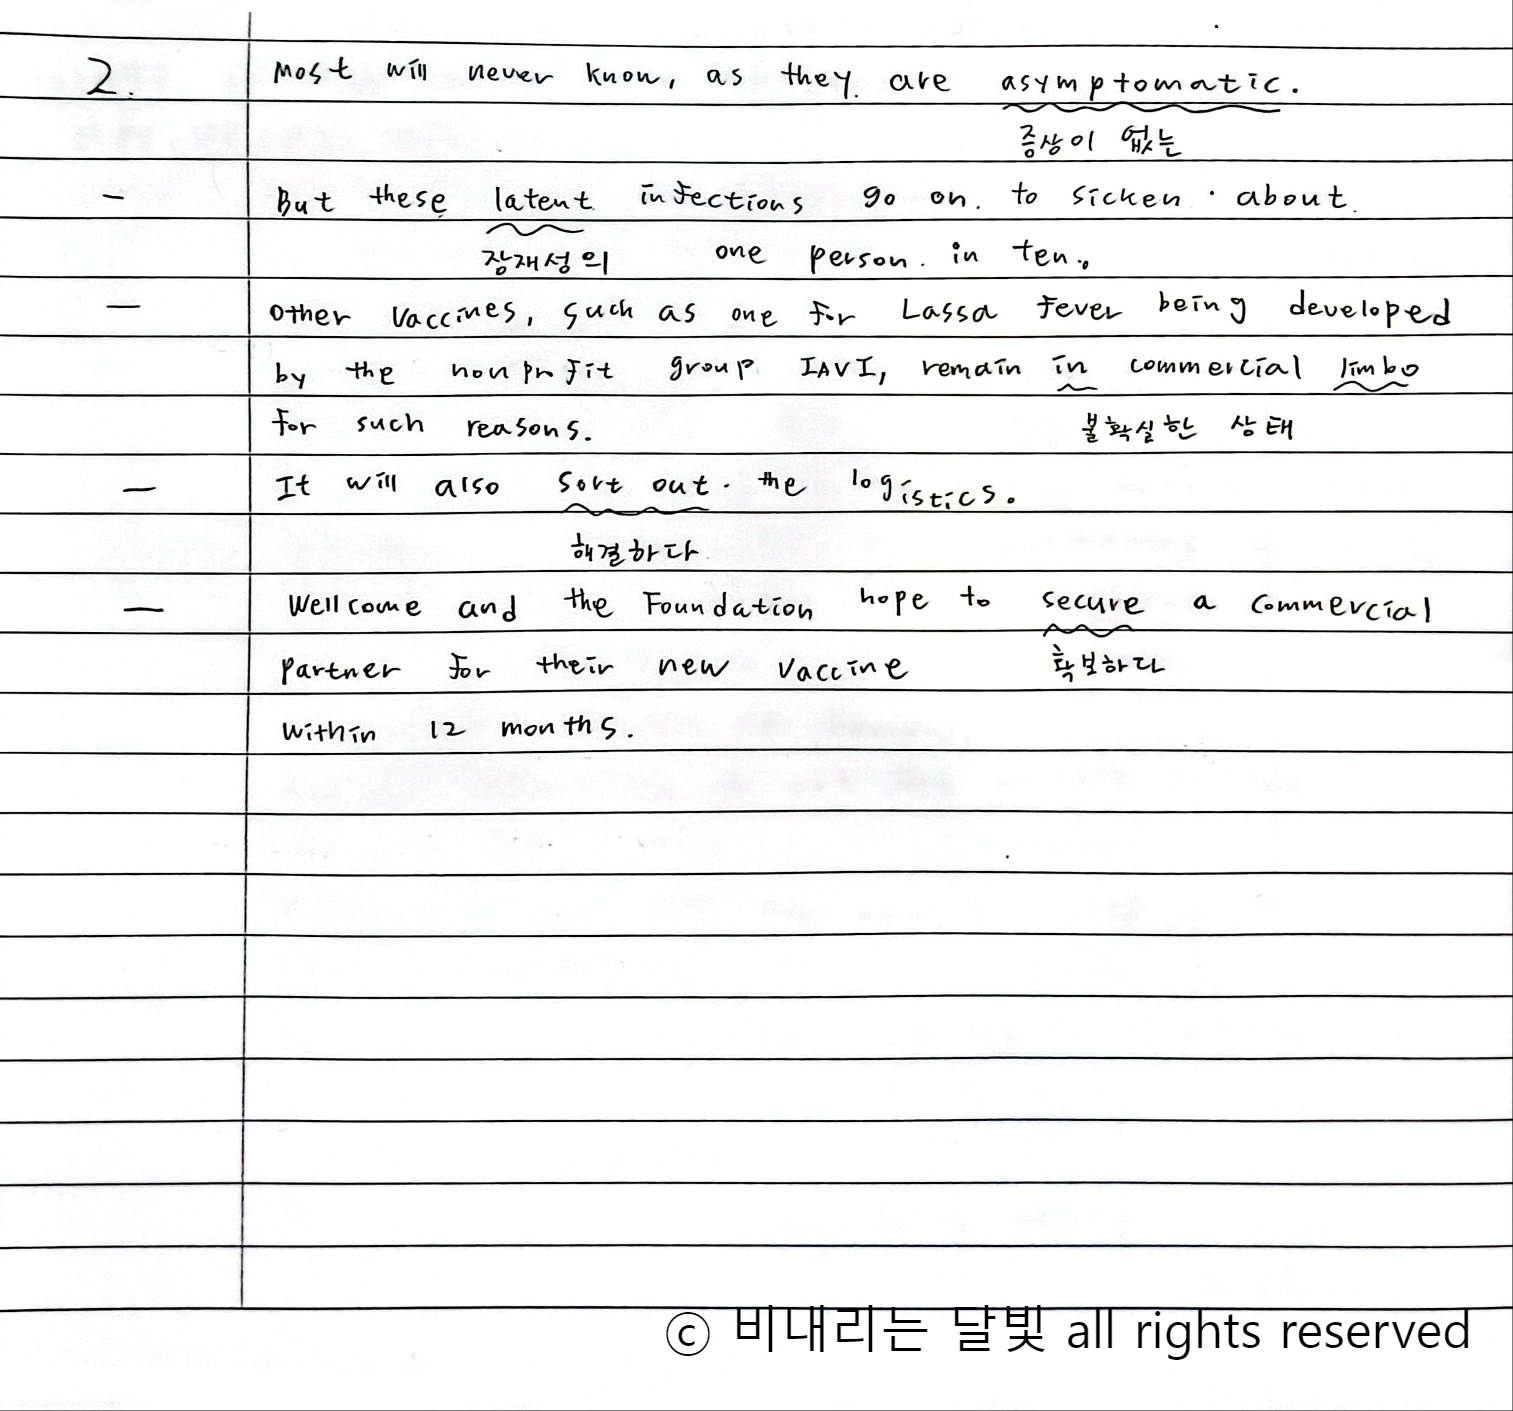 2. Most will never know, as they are asymptomatic.
증상이 없는
- But these latent infections go on to sicken about
잠재성의 one person in ten.
- Other vaccines, such as one for Lassa fever being developed
by the nonprofit group IAVI, remain in commercial limbo
for such reasons. 불확실한 상태
- It will also sort out the logistics.
해결하다
- Wellcome and the Foundation hope to secure a commercial
partner for their new vaccine 확보하다
within 12 months.
ⓒ 비내리는 달빛 all rights reserved